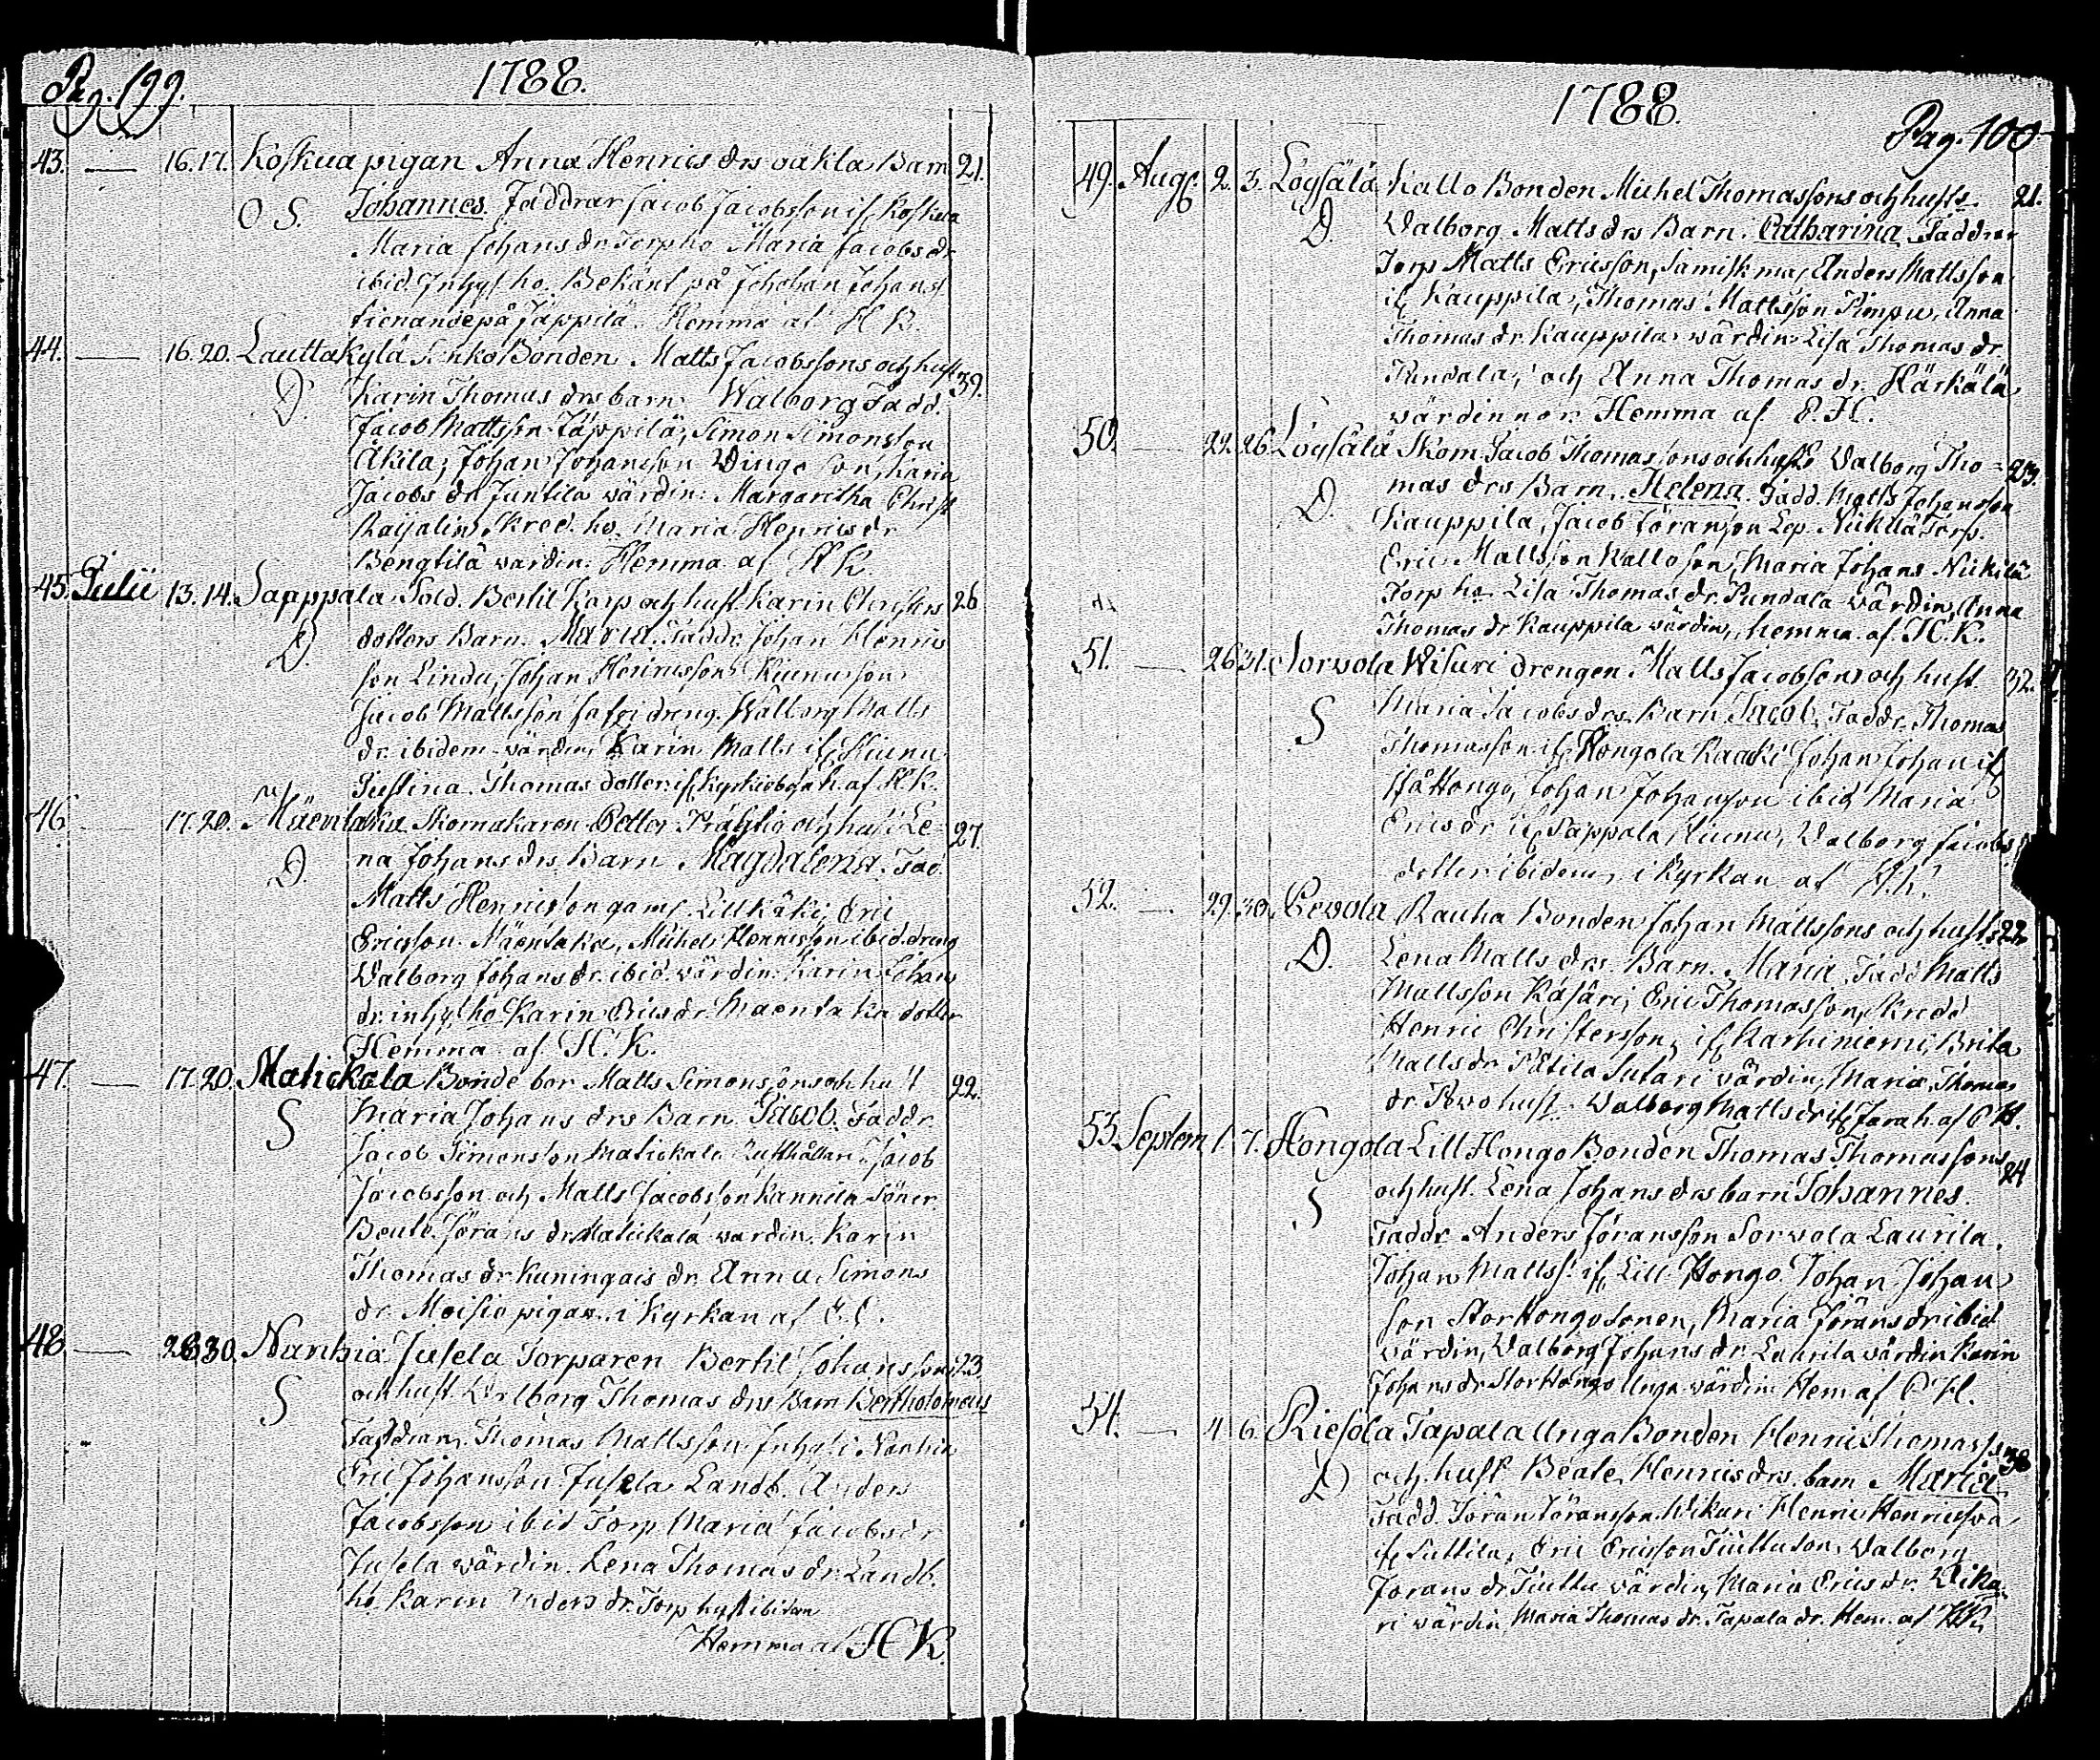 Pag. 199.
1788.
43. — 16. 17. Koskua pigan Anna Henrics drs oäkta Barn 21.
O S. Johannes. Faddrar Jacob Jacobsson if. Koskua
Maria Johans dr Torp ho Maria Jacobs dr
ibid Inhys ho. Bekänt på Johan Johans
tienande på Jäppilä. Hemma af H K.
44. — 16. 20. Lauttakylä Bonden Matts Jacobssons och hust 39.
D. Karin Thomas drs barn Walborg Fadd.
Jacob Mattsson Jäppilä, Simon Simonsson
Äkilä, Johan Johansson Dinge son, Maria
Jacobs dr Juntila wärdin: Margaretha Christ
Kred. ho. Maria Henrics dr
Bengtilä wärdin. Hemma af H K.
45. Julii 13. 14. Sappala Sold. Bertil Korp och hust Karin Christers 26
D. dotters Barn. Maria. Faddr. Johan Henrics
son Lindu, Johan Henricsson Kiunu son
Jacob Mattsson dreng. Walborg Matts
dr. ibidem wärdin Karin Matts if. Kiunu
Justina Thomas dotter if. h. af H. K.
46. — 17. 20. Mäentaka Skomakaren Petter och hust. Le- 27.
D. na Johans drs Barn Magdalena. Fad.
Matts Henricsson gaml. Lill Käki, Eric
Ericsson Mäentaka, Michel Henricsson ibid. dreng
Valborg Johans dr. ibid. wärdin. Karin Johans
dr. inhys ho Karin Erics dr. Mäentaka dotter
Hemma af H. K.
47. — 17. 20. Matickala Bonde bor Matts Simonssons och hust 22.
S Maria Johans drs Barn Jacob. Faddr.
Jacob Simonsson Matickala Rusthållare. Jacob
Jacobsson och Matts Jacobsson Kannila Söner.
Beate Jörans dr. Matickala wärdin. Karin
Thomas dr Kuningais dr. Anna Simons
dr. Moisio pigan. i Kyrkan af
48. — 28 30. Nanhia Jusela Torparen Bertil Johanssons 23.
S och hust. Walborg Thomas drs Barn Bertholomeus
Faddrar. Thomas Mattsson Inhys i Nanhia
Eric Johansson Jusela Landb. Anders
Jacobsson ibid Torp Maria Jacobs dr
Jusela wärdin. Lena Thomas dr. Landb.
ho. Karin Anders dr. Torp hust ibidem
Hemma af H K.
1788.
Pag. 100
49. Aug. 2. 3. Loysälä Kallo Bonden Michel Thomassons och husts. 21.
D. Walborg Matts drs Barn. Catharina. Faddrar
Torp Matts Ericsson, Anders Mattsson
if. Kauppila, Thomas Mattsson Pimpu, Anna
Thomas dr. Kauppila wärdin Lisa Thomas dr.
Pundala, och Anna Thomas dr. Härkälä
wärdinnor. Hemma af E. H.
50. — 22. 26. Loysälä Skom Jacob Thomassons och hust Valborg Tho- 23.
D. mas drs Barn. Helena. Fadd. Matts Johansson
Kauppila, Jacob Jöransson Lep. Nickilä Torp.
Eric Mattsson Kallo son, Maria Johans Nickilä
Torp ho. Lisa Thomas dr. Pundala wärdin, Anna
Thomas dr Kauppila wärdin, hemma af. H. K.
51. — 26 31. Sorwola Wisuri drengen Matts Jacobsons och hust. 32.
S Maria Jacobs drs Barn Jacob. Faddr. Thomas
Thomasson if. Hongola Kaaki Johan Johan if.
Hongo, Johan Johansson ibid Maria
Erics dr if. Sappala, Kiunu, Valborg Jacobs
dotter ibidem, i Kyrkan af H. K.
52. — 29. 30. Pewola Rauha Bonden Johan Mattssons och husts 22
D. Lena Matts drs Barn. Maria, Fadd Matts
Mattsson Käsäri, Eric Thomasson, Skredd
Henric Christersson, if. Karhiniemi, Brita
Matts dr Pätilä Sutari wärdin, Maria Thomas
dr. hust. Walborg Matts dr if. h. af E H.
53. Septem 1. 7. Hongola Lill Hongo Bonden Thomas Thomassons 24
S och hust. Lena Johans drs barn Johannes.
Faddr Anders Jöransson Sorwola Laurila.
Johan Matts. if. Lill Hongo. Johan Johans
son Stor Hongo Sonen, Maria Jörans dr ibid
wärdin, Valborg Johans dr. Laurila wärdin Karin
Johans dr. Stor Hongo Unga wärdin. Hem af E H.
54. — 4 6. Riesola Tapala Unga Bonden Henric Thomassons 38
D och hust Beate Henrics drs. barn Maria
Fadd. Jöran Jöransson Wikari Henric Henricsson
if. Suttila, Eric Ericsson Tiuttu son, Valborg
Jörans dr Tiuttu wärdin, Maria Erics dr. Wika-
ri wärdin, Maria Thomas dr. Tapala dr. Hem. af H K.